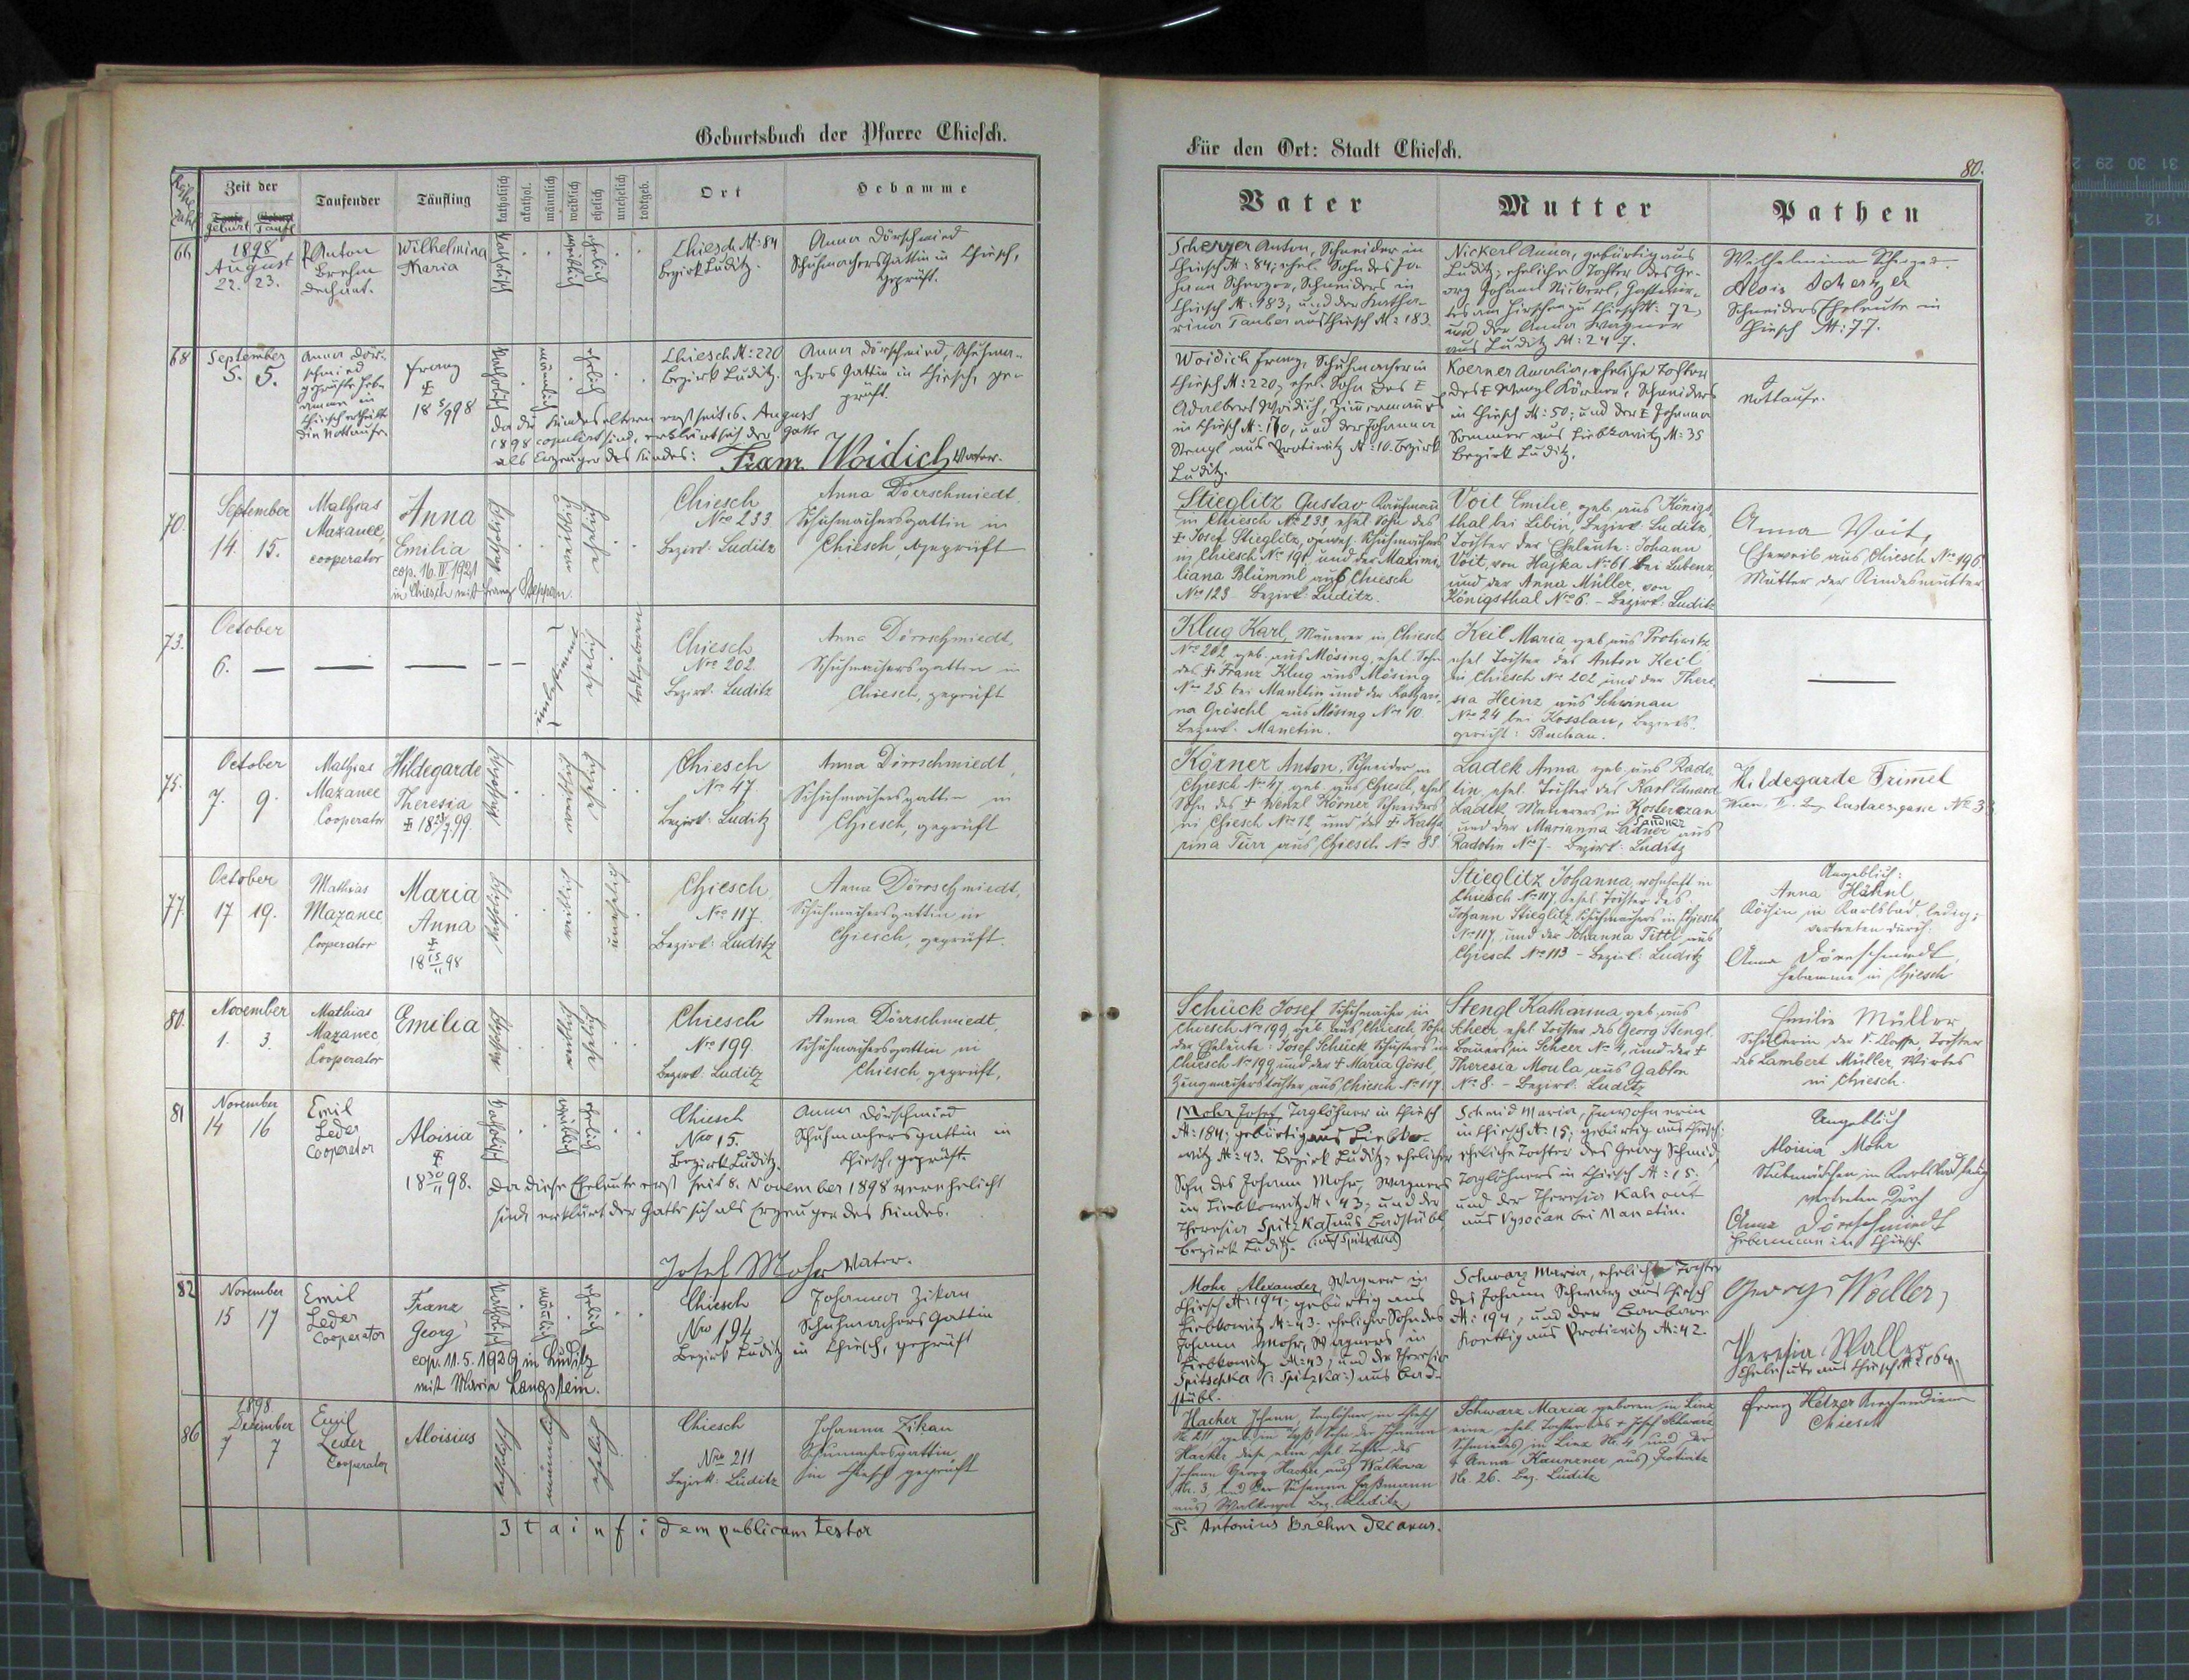 Geburtsbuch der Pfarre Chiesch.
Zeit der
Taufender
Täufling
katholisch
akathol.
männlich
weiblich
ehelich
unehelich
todtgeb.
Ort
Hebamme
Geburt Taufe
66
1898
August
22. 23.
P. Anton
Brehm
Dechant.
Wilhelmina
Maria
katholisch
weiblich
ehelich
Chiesch N: 84
Bezirk Luditz.
Anna Dörschmied
Schuhmachersgattin in Chiesch,
geprüft.
68
September
5. 5.
Anna Dör-
schmied
geprüfte Heb-
amme in
Chiesch ertheilte
die Nottaufe.
Franz
18 5/9 98
katholisch
männlich
ehelich
Chiesch N: 220
Bezirk Luditz.
Anna Dörschmied, Schuhma-
chers Gattin in Chiesch, ge-
prüft.
Da die Kindeseltern erst seit 16. August
1898 copulirt sind, erklärt sich der Gatte
als Erzeuger des Kindes: Franz Woidich Vater.
70.
September
14. 15.
Mathias
Mazanec,
cooperator
Anna
Emilia
cop. 16. IV 1921
in Chiesch mit Franz
katholisch
weiblich
ehelich
Chiesch
Nro 233.
Bezirk: Luditz
Anna Döerschmiedt
Schuhmachersgattin in
Chiesch geprüft
73.
October
6. — — —
unbestimmt
ehelich
todtgeboren
Chiesch
Nro 202.
Bezirk: Luditz
Anna Dörrschmiedt,
Schuhmachersgattin in
Chiesch, geprüft
75.
October
7. 9.
Mathias
Mazanec
Cooperator
Hildegarde
Theresia
katholisch
weiblich
ehelich
Chiesch
Nro 47.
Bezirk: Luditz
Anna Dörrschmiedt,
Schuhmachersgattin in
Chiesch, geprüft
77.
October
17 19.
Mathias
Mazanec
Cooperator
Maria
Anna
18 15/11 98
katholisch
weiblich
unehelich
Chiesch
Nro 117.
Bezirk: Luditz
Anna Dörrschmiedt,
Schuhmachersgattin in
Chiesch, geprüft.
80.
November
1. 3.
Mathias
Mazanec
Cooperator
Emilia
katholisch
weiblich
ehelich
Chiesch
Nro 199.
Bezirk: Luditz
Anna Dörrschmiedt,
Schuhmachersgattin in
Chiesch, geprüft,
81
November
14 16
Emil
Leder
Cooperator
Aloisia
18 30/11 98.
katholisch
weiblich
ehelich
Chiesch
Nro 15.
Bezirk Luditz.
Anna Dörschmied
Schuhmachersgattin in
Chiesch, geprüft.
Da diese Eheleute erst seit 8. November 1898 verehelicht
sind, erklärt der Gatte sich als Erzeuger des Kindes.
Josef Mohr Vater.
82
November
15 17
Emil
Leder
Cooperator
Franz
Georg
cop. 11.5.1929 in Luditz
mit Marie Langstein.
katholisch
männlich
ehelich
Chiesch
Nro 194
Bezirk Luditz
Johanna Zikan
Schuhmachers Gattin
in Chiesch, geprüft
86
1898.
December
7 7
Emil
Leder
Cooperator
Aloisius
katholisch
männlich
ehelich
Chiesch
Nro 211
Bezirk: Luditz
Johanna Zikan
Schumachersgattin
in Chiesch geprüft
Ita in fidem publicam testor
Für den Ort: Stadt Chiesch.
80.
Vater
Mutter
Pathen
Scherzer Anton, Schneider in
Chiesch N: 84; ehel. Sohn des Jo-
hann Scherzer, Schneiders in
Chiesch N: 183, und der Katha-
rina Tauber aus Chiesch N: 183.
Nickerl Anna, gebürtig aus
Luditz, eheliche Tochter des Ge-
org Johann Nickerl, Gastwir-
tes am Hirschen zu Chiesch N: 72,
und der Anna Wagner
aus Luditz N: 247.
Wilhelmine Scherzer.
Alois Scherzer
Schneiders Eheleute in
Chiesch N: 77.
Woidich Franz, Schuhmacher in
Chiesch N: 220, ehel. Sohn des
Adalbert Woidich, Zimmermanns
in Chiesch N: 170, und der Johanna
Stengl aus Protiwitz N: 10. Bezirk
Luditz.
Koerner Amalia, eheliche Tochter
des Wenzl Körner, Schneiders
in Chiesch N: 50; und der Johanna
Sommer aus Liebkowitz N: 35
Bezirk Luditz.
Nottaufe.
Stieglitz Gustav Kaufmann
in Chiesch No 233, ehel. Sohn des
Josef Stieglitz, gewes. Schuhmachers
in Chiesch No 191, und der Maximi-
liana Blümml aus Chiesch
No 123 Bezirk: Luditz.
Voit Emilie, geb. aus Königs-
thal bei Libin, Bezirk: Luditz,
Tochter der Eheleute: Johann
Voit, von Hajka No 61 bei Lubenz,
und der Anna Müller, von
Königsthal No 6. – Bezirk: Luditz
Anna Voit,
Eheweib aus Chiesch No 196.
Mutter der Kindesmutter
Klug Karl, Maurer in Chiesch
No 202 geb. aus Mösing, ehel. Sohn
des Franz Klug aus Mösing
No 25 bei Manetin und der Kathari-
na Gröschl aus Mösing No 10.
Bezirk: Manetin.
Keil Maria, geb. aus Protiwitz,
ehel. Tochter des Anton Keil
in Chiesch No 202 und der There-
sia Heinz aus Schönau
No 24 bei Kosslau, Bezirks-
gericht: Buchau.
—
Körner Anton, Schneider in
Chiesch No 47, geb. aus Chiesch, ehel.
Sohn des + Wenzl Körner Schneiders
in Chiesch No 12, und der Katha-
rina Türr aus Chiesch No 88
Ladek Anna geb. aus Rado-
tin, ehel. Tochter des Karl Eduard
Ladek, Maurers in
und der Marianna Sandner aus
Radotin No 7. Bezirk: Luditz
Hildegarde Trimmel
Stieglitz Johanna, wohnhaft in
Chiesch No 117, ehel. Tochter des
Johann Stieglitz, Schuhmachers in Chiesch
No 117, und der Johanna Tittl aus
Chiesch No 113 – Bezirk: Luditz
Angeblich:
Anna Hähnl,
Köchin in Karlsbad, ledig;
vertreten durch:
Anna Dörrschmiedt,
Hebamme in Chiesch
Schück Josef Schuhmacher in
Chiesch No 199, geb. aus Chiesch, Sohn
der Eheleute: Josef Schück Schusters in
Chiesch No 199 und der + Maria Gössl,
Zeugmacherstochter aus Chiesch No 117
Stengl Katharina, geb. aus
Scheer ehel. Tochter des Georg Stengl,
Bauers in Scheer No 4, und der +
Theresia Moula aus Gabhon
No 8. – Bezirk: Luditz
Emilie Müller
Schülerin der V. Classe, Tochter
des Lambert Müller, Wirtes
in Chiesch.
Mohr Josef, Taglöhner in Chiesch
N: 184; gebürtig aus Liebko-
witz N: 43. Bezirk Luditz, ehelicher
Sohn des Johann Mohr, Wagners
in Liebkowitz N: 43, und der
Theresia Spitzka aus Badstübl
Bezirk Luditz.
Schmid Maria, Inwohnerin
in Chiesch N: 15; gebürtig aus Chiesch;
eheliche Tochter des Georg Schmid,
Taglöhners in Chiesch N: 15;
und der Theresia Kahout
aus Vysočan bei Manetin.
Angeblich
Aloisia Mohr
Stubmädchen in Karlsbad, ledig
vertreten durch
Anna Dörrschmiedt
Hebamme in Chiesch.
Mohr Alexander, Wagner in
Chiesch N: 194; gebürtig aus
Liebkowitz N: 43. ehelicher Sohn des
Johann Mohr, Wagners in
Liebkowitz N: 43, und der Theresia
Spitschka (: Spitzka :) aus Bad-
stübl.
Schwarz Maria, eheliche Tochter
des Johann Schwarz aus Chiesch
N: 194, und der Barbara
Koettig aus Protiwitz N: 42.
Georg Wodler,
Theresia Waller
Eheleute aus Chiesch
Hacker Johann, Taglöhner in Chiesch
N. 211 geb. in Sohn der Johanna
Hacker diese eine ehel. Tochter des
Johann Georg Hacker aus Walkowa
Nr. 3, und der Susanna Haßmann
aus Walkowa Bez. Luditz
Schwarz Maria geboren in Linz,
eine ehel. Tochter des + Josef Schwarz,
Schmiedes in Linz Nr. 4 und der
+ Anna Kaunzner aus Protiwitz
Nr. 26. Bez. Luditz
Franz Hetzer
Chiesch
P. Antonius Brehm Decanus.